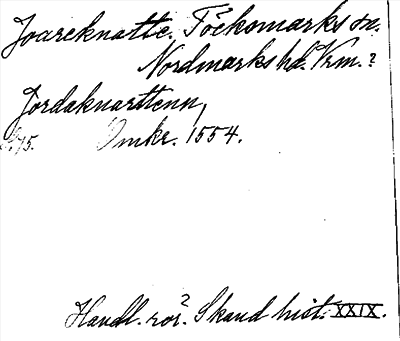 Joareknatte. Töckomarks sn.
Nordmarks hd. Vrm.?
Jordaknarttenn,
S. 75. Omkr. 1554.
Handl. rör.? Skand hist. XXIX.